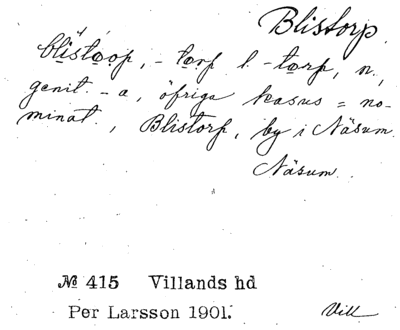 Blistorp.
blistoop, - torp l. - tarp, n.,
genit. - a, öfriga kasus = no-
minat., Blistorp, by i Näsum.
Näsum.
№ 415 Villands hd
Per Larsson 1901.
Vill